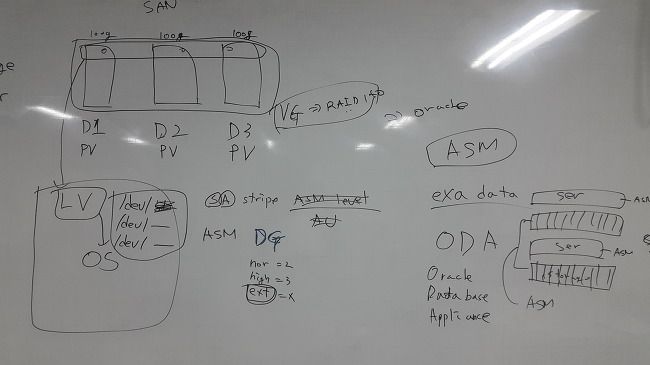 SAN
100g 100g 100g
D1 D2 D3
PV PV PV
VG ⇒ RAID 1+0
⇒ oracle
ASM
LV
/dev/
/dev/
/dev/
OS
SA stripe ASM level
AU
ASM DG
nor = 2
high = 3
ext = x
exa data
ser ASM
ODA
ser ASM
Oracle
Database
Appliance
ASM